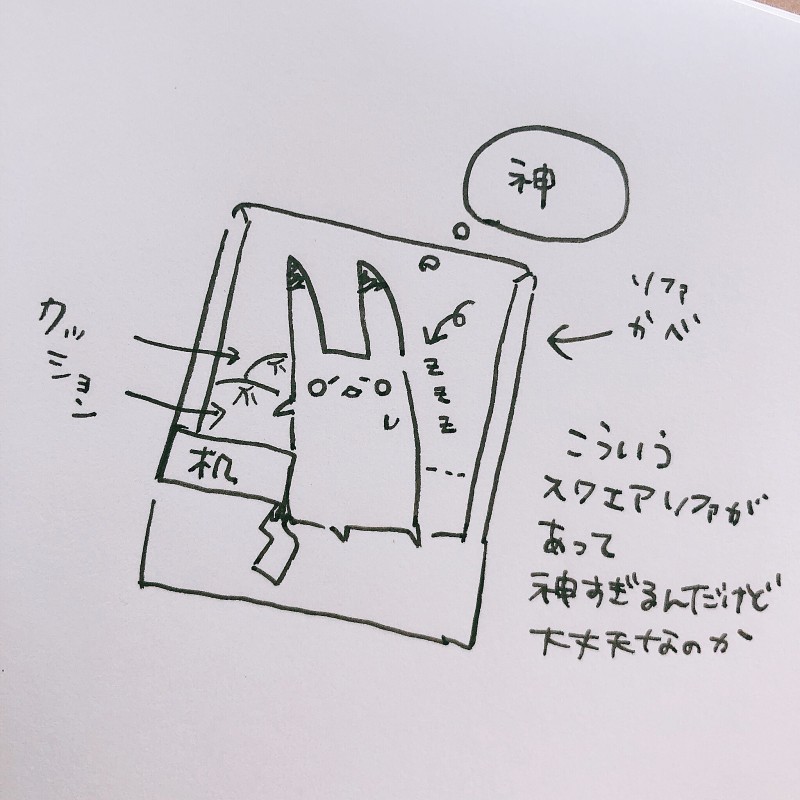 神
ソファ
かべ
クッ
ション
z
z
z
机
こういう
スクエアソファが
あって
神すぎるんだけど
大丈夫なのか